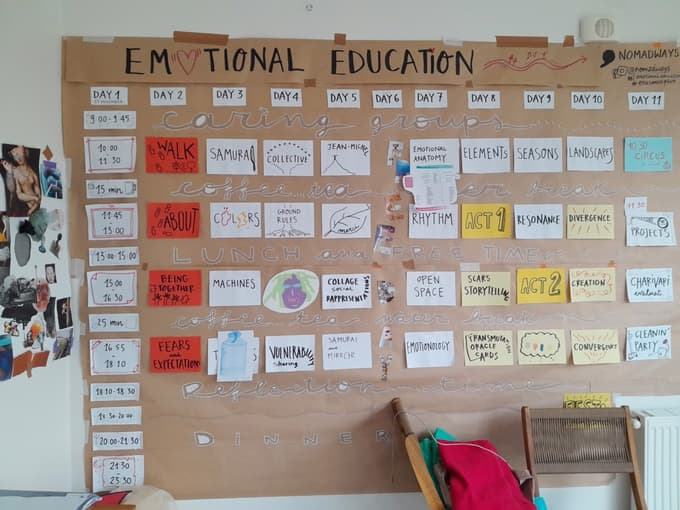 EMOTIONAL EDUCATION
NOMADWAYS
@nomadways
DAY 1 DAY 2 DAY 3 DAY 4 DAY 5 DAY 6 DAY 7 DAY 8 DAY 9 DAY 10 DAY 11
9:00-9:45 caring groups
10:00 11:30 WALK SAMURAI COLLECTIVE JEAN-MICHEL EMOTIONAL ANATOMY ELEMENTS SEASONS LANDSCAPES 10:30 CIRCUS
15 min coffee tea water break
11:45 13:00 ABOUT COLORS GROUND RULES RHYTHM ACT 1 RESONANCE DIVERGENCE 11:30 PROJECTS
13:00-15:00 LUNCH and FREE TIME
15:00 16:30 BEING TOGETHER MACHINES COLLAGE SOCIAL RAPPRESENTATIONS OPEN SPACE SCARS STORYTELLING ACT 2 CREATION CHARIVARI
25 min coffee tea water break
16:55 - 18:10 FEARS and EXPECTATIONS VULNERABILITY sharing SAMURAI and MIRROR EMOTIONOLOGY TRANSMUTA ORACLE CARDS CONVERGENCE CLEANIN' PARTY
18:10-18:30 Reflection time
18:30-20:00
20:00-21:30 DINNER
21:30 - 23:30